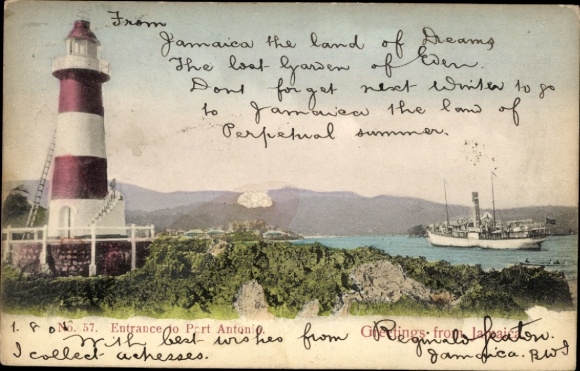 From
Jamaica the land of Dreams
The lost Garden of Eden.
Dont forget next Winter to go
to Jamaica the lan of
Perpetual summer.
No. 57. Entrance to Port Antonio.
Greetings from Jamaica
1. 8 06
With best wishes from Reginald Seaton.
I collect actresses. Jamaica. BWI